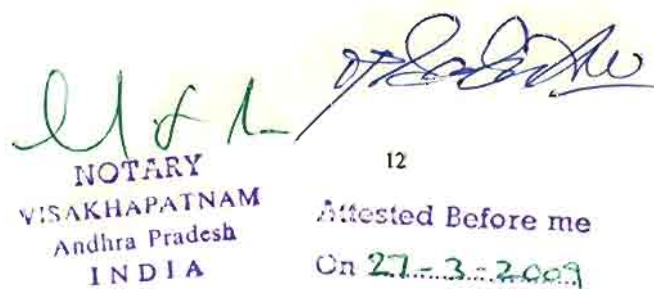 NOTARY
VISAKHAPATNAM
Andhra Pradesh
INDIA
12
Attested Before me
On 27-3-2009